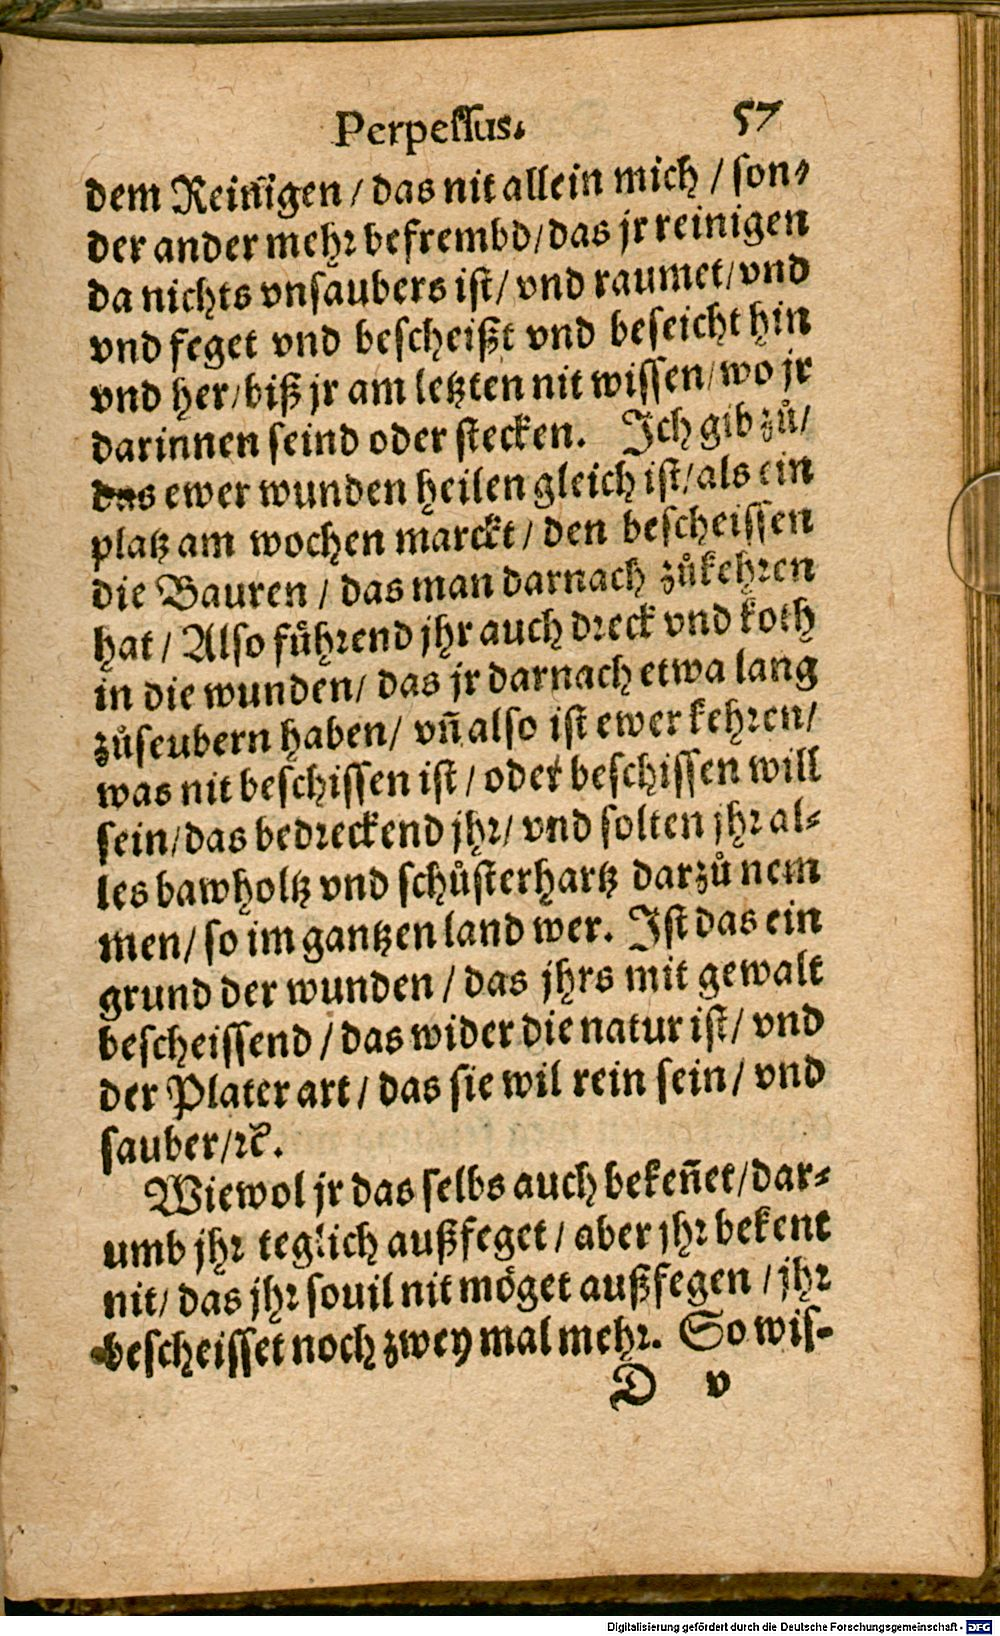 Perpeſſus. 57
dem Reiñigen / das nit allein mich / ſon⸗
der ander mehr befrembd / das jr reinigen
da nichts vnſaubers iſt / vnd raumet / vnd
vnd feget vnd beſcheißt vnd beſeicht hin
vnd her / biß jr am letzten nit wiſſen / wo jr
darinnen ſeind oder ſtecken. Ich gib zů /
das ewer wunden heilen gleich iſt / als ein
platz am wochen marckt / den beſcheiſſen
die Bauren / das man darnach zůkehren
hat / Alſo fůhrend jhr auch dreck vnd koth
in die wunden / das jr darnach etwa lang
zůſeubern haben / vñ alſo iſt ewer kehren /
was nit beſchiſſen iſt / oder beſchiſſen will
ſein / das bedreckend jhr / vnd ſolten jhr al⸗
les bawholtz vnd ſchůſterhartz darzů nem
men / ſo im gantzen land wer. Iſt das ein
grund der wunden / das jhrs mit gewalt
beſcheiſſend / das wider die natur iſt / vnd
der Plater art / das ſie wil rein ſein / vnd
ſauber / ꝛc̄.
Wiewol jr das ſelbs auch bekeñet / dar⸗
umb jhr teglich außfeget / aber jhr bekent
nit / das jhr ſouil nit möget außfegen / jhr
beſcheiſſet noch zwey mal mehr. So wiſ⸗
D v
Digitalisierung gefördert durch die Deutsche Forschungsgemeinschaft - DFG